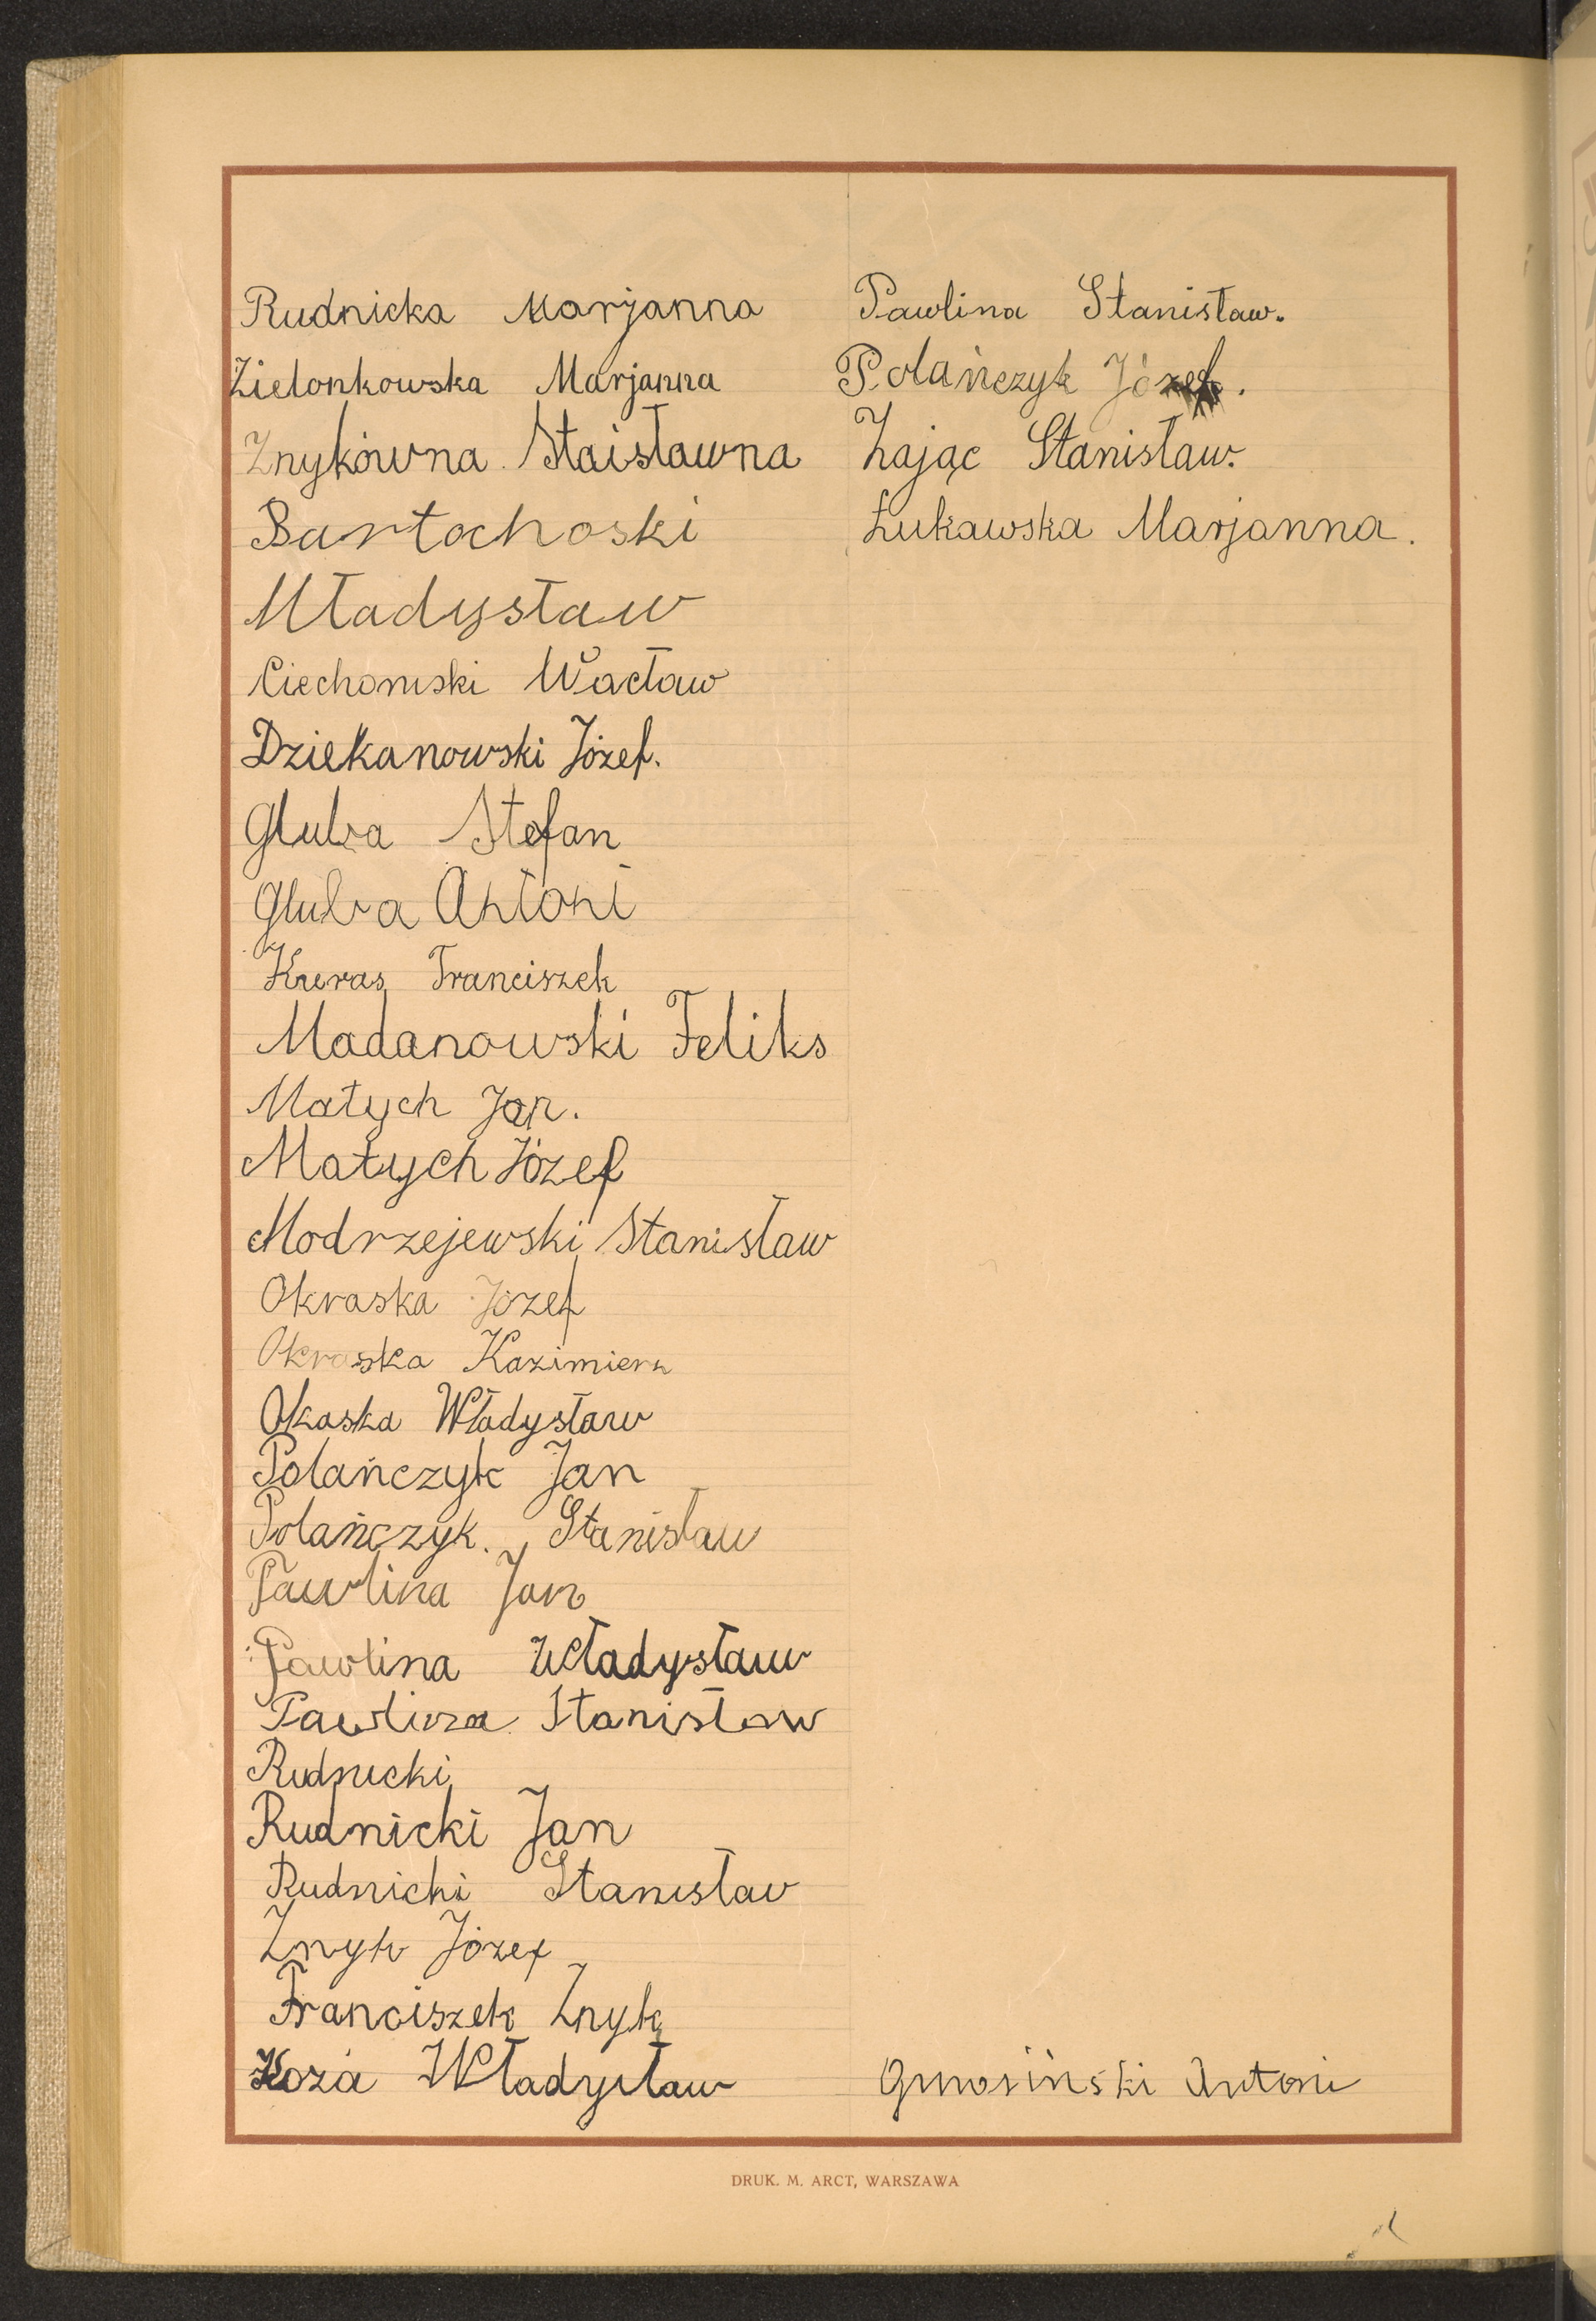 Rudnicka Marjanna
Zielonkowska Marjanna
Znykówna Staisławna
Bartochoski
Władysław
Ciechomski Wacław
Dziekanowski Józef.
Gluba Stefan
Gluba Antoni
Kuras Franciszek
Madanowski Feliks
Małych Jan.
Małych Józef
Modrzejewski Stanisław
Okraska Józef
Okraska Kazimierz
Okaska Władysław
Polańczyk Jan
Polańczyk. Stanisław
Pawlina Jan
Pawlina Władysław
Pawlina Stanisław
Rudnicki
Rudnicki Jan
Rudnicki Stanisław
Znyk Józef
Franciszek Znyk
Koza Władysław
Pawlina Stanisław.
Polańczyk Józef.
Zając Stanisław.
Łukawska Marjanna.
Antoni
DRUK. M. ARCT, WARSZAWA